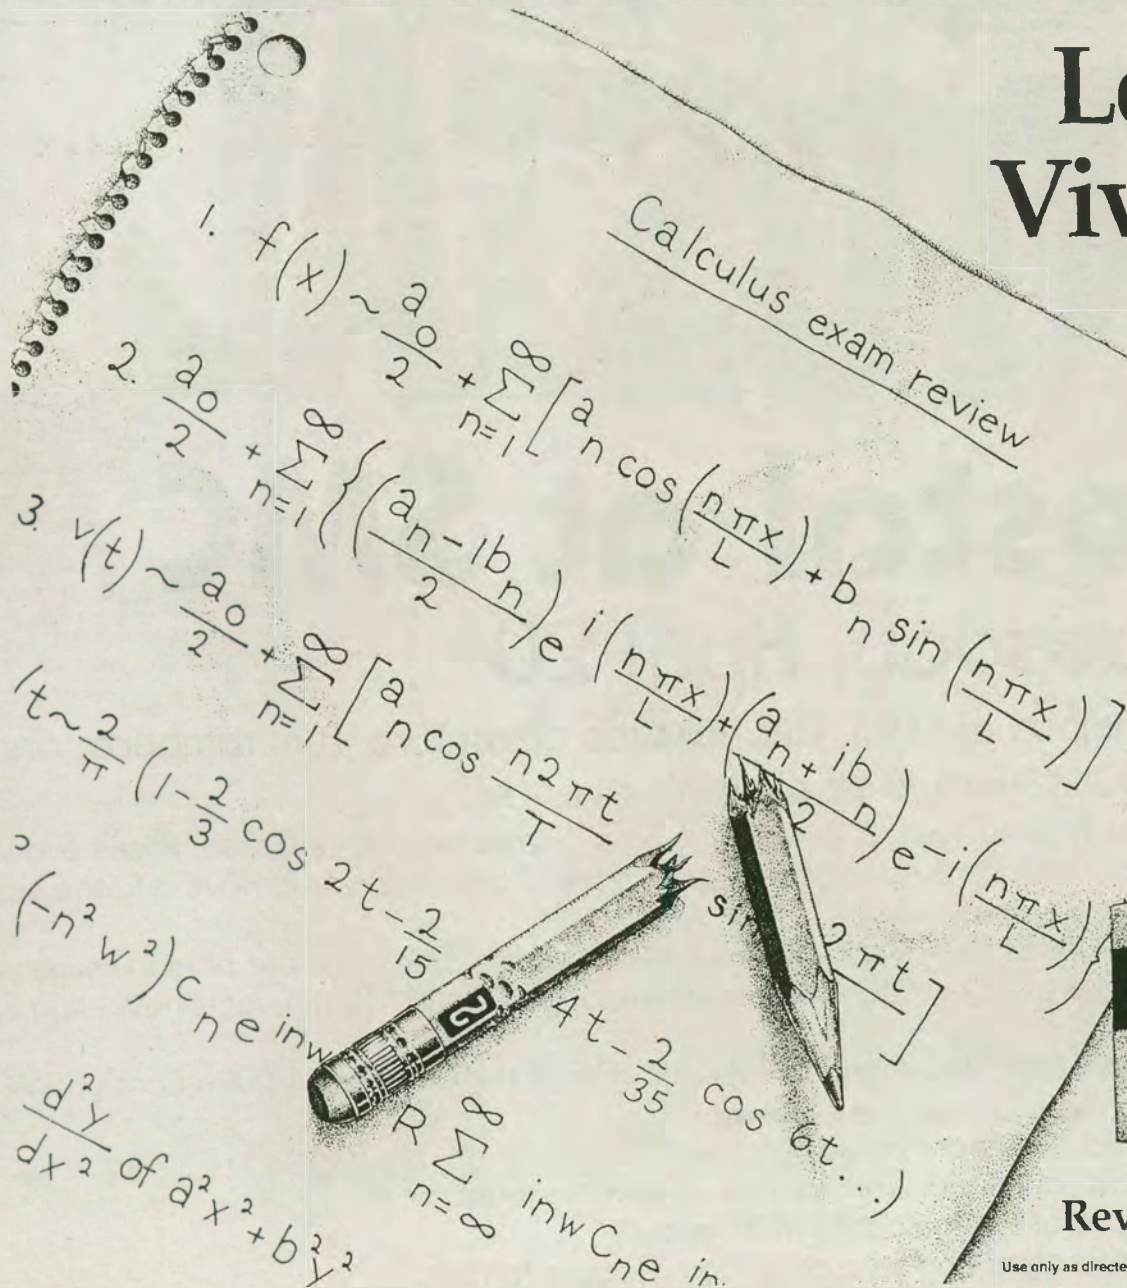 Calculus exam review
1. f(x) ~ a₀/2 + Σ n=1 ∞ [aₙ cos (nπx/L) + bₙ sin (nπx/L)]
2. a₀/2 + Σ n=1 ∞ {((aₙ - 1bₙ)/2) e i(nπx/L) + ((aₙ + ibₙ)/2) e -i(nπx/L)}
3. v(t) ~ a₀/2 + Σ n=1 ∞ [aₙ cos n2πt/T sin 2πt]
(t ~ 2/π (1 - 2/3 cos 2t - 2/15 4t - 2/35 cos 6t...)
(-n²w²) cₙe inw R Σ n=∞ ∞ inw Cₙe in
d²y/dx² of a²x² + b²y²
2
Use only as directe